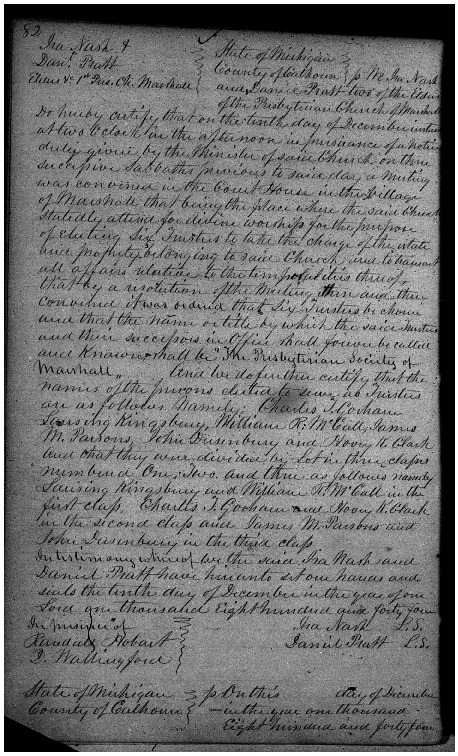 82
Ira Nash &
Danl. Pratt
Elders &c 1st Pres. Ch. Marshall
State of Michigan
County of Calhoun } ss We Ira Nash
and Daniel Pratt two of the Elders
of the Presbyterian Church of Marshall
Do hereby certify that on the tenth day of December instant
at two O'clock in the afternoon in pursuance of a notice
duly given by the Minister of said Church on three
successive Sabbaths previous to said day a meeting
was convened in the Court House in the Village
of Marshall that being the place where the said Church
statedly attend for divine worship for the purpose
of electing Six Trustees to take the charge of the estate
and property belonging to said Church and to transact
all affairs relative to the temporalities thereof,
that by a resolution of the Meeting then and there
convened it was ordered that Six Trustees be chosen
and that the name or title by which the said Trustees
and their successors in Office shall forever be called
and Known shall be "The Presbyterian Society of
Marshall" And we do further certify that the
names of the persons elected to serve as Trustees
are as follows Namely: Charles T. Gorham
Lansing Kingsbury, William R. McCall, James
M. Parsons, John Dusenbury and Hovey K. Clark
and that they were divided by Lot in three classes
numbered One, Two and three as follows namely
Lansing Kingsbury and William R. McCall in the
first class, Charles T. Gorham and Hovey K. Clark
in the second class and James M. Parsons and
John Dusenbury in the third class
In testimony whereof we the said Ira Nash and
Daniel Pratt have hereunto set our hands and
seals the tenth day of December in the year of our
Lord one thousand Eight hundred and forty four
In presence of
Randall Hobart
D. Wallingford
Ira Nash L.S.
Daniel Pratt L.S.
State of Michigan } ss On this day of December
County of Calhoun } in the year one thousand
Eight hundred and forty four